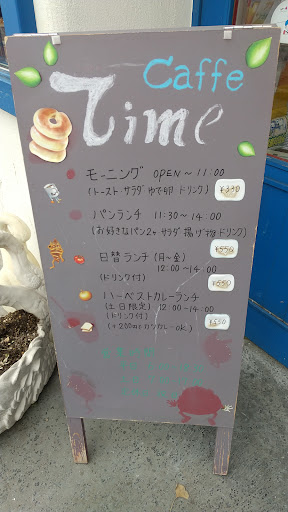 Caffe
Time
モーニング OPEN～11:00
(トースト サラダ ゆで卵 ドリンク) ¥330
パンランチ 11:30～14:00
(お好きなパン2ヶ サラダ 揚げ物 ドリンク)
¥550
日替ランチ (月～金)
12:00～14:00
(ドリンク付)
ハーベストカレーランチ
(土日限定) 12:00～14:00
(ドリンク付)
(+200円でカツカレーOK)